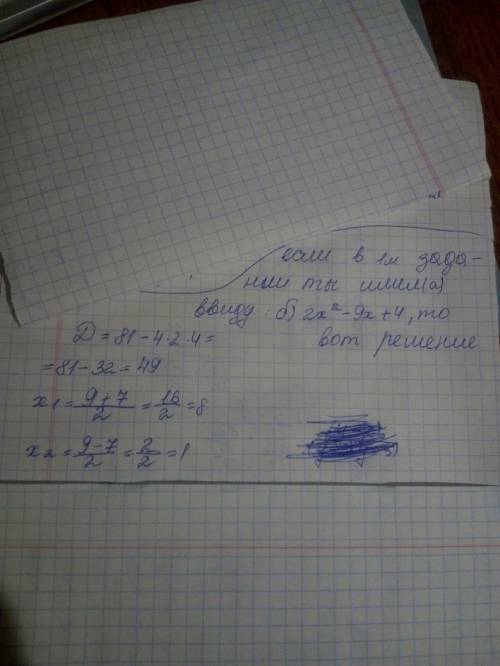 если в 1м зада-
нии ты имел(а)
ввиду: б) 2x²-9x+4, то
вот решение
D = 81-4·2·4=
=81-32=49
x1=9+7/2=16/2=8
x2=9-7/2=2/2=1